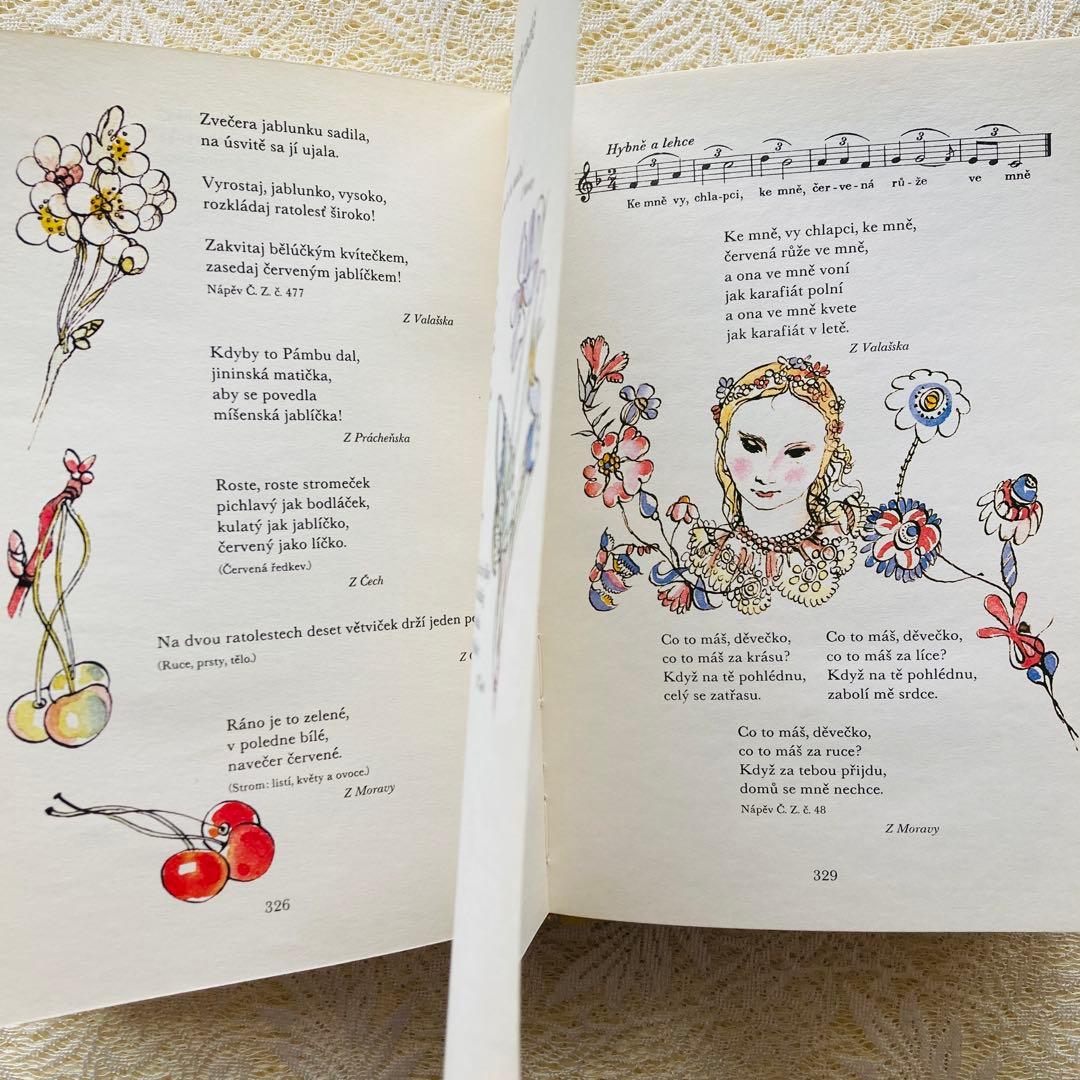 Zvečera jablunku sadila,
na úsvitě sa jí ujala.
Vyrostaj, jablunko, vysoko,
rozkládaj ratolesť široko!
Zakvitaj bělúčkým kvítečkem,
zasedaj červeným jablíčkem!
Nápěv Č. Z. č. 477
Z Valašska
Kdyby to Pámbu dal,
jininská matička,
aby se povedla
míšenská jablíčka!
Z Prácheňska
Roste, roste stromeček
pichlavý jak bodláček,
kulatý jak jablíčko,
červený jako líčko.
(Červená ředkev.)
Z Čech
Na dvou ratolestech deset větviček drží jeden
(Ruce, prsty, tělo.)
Z
Ráno je to zelené,
v poledne bílé,
navečer červené.
(Strom: listí, květy a ovoce.)
Z Moravy
326
Hybně a lehce
3 3 3 3 3 3
2
4
Ke mně vy, chla-pci, ke mně, čer-ve-ná rů-že ve mně
Ke mně, vy chlapci, ke mně,
červená růže ve mně,
a ona ve mně voní
jak karafiát polní
a ona ve mně kvete
jak karafiát v letě.
Z Valašska
Co to máš, děvečko,
co to máš za krásu?
Když na tě pohlédnu,
celý se zatřasu.
Co to máš, děvečko,
co to máš za líce?
Když na tě pohlédnu,
zabolí mě srdce.
Co to máš, děvečko,
co to máš za ruce?
Když za tebou přijdu,
domů se mně nechce.
Nápěv Č. Z. č. 48
Z Moravy
329